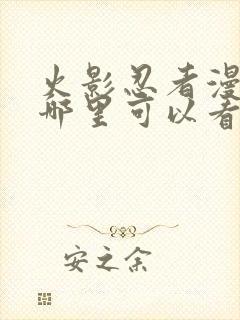 火影忍者漫
哪里可以看
安之余